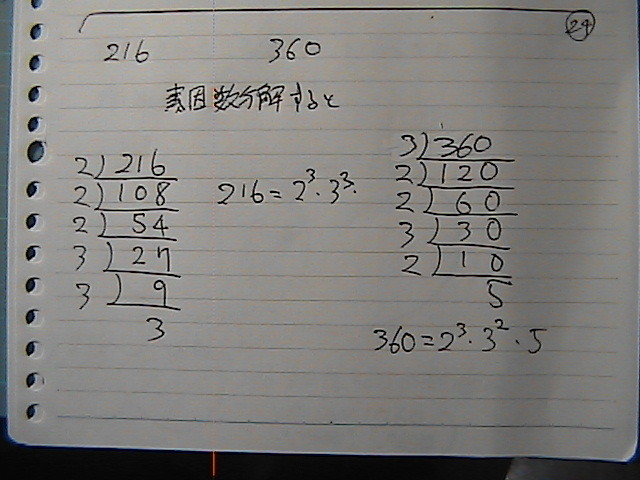 24
216 360
素因数分解すると
2)216
2)108
2)54
3)27
3)9
3
216=2³·3³·
3)360
2)120
2)60
3)30
2)10
5
360=2³·3²·5